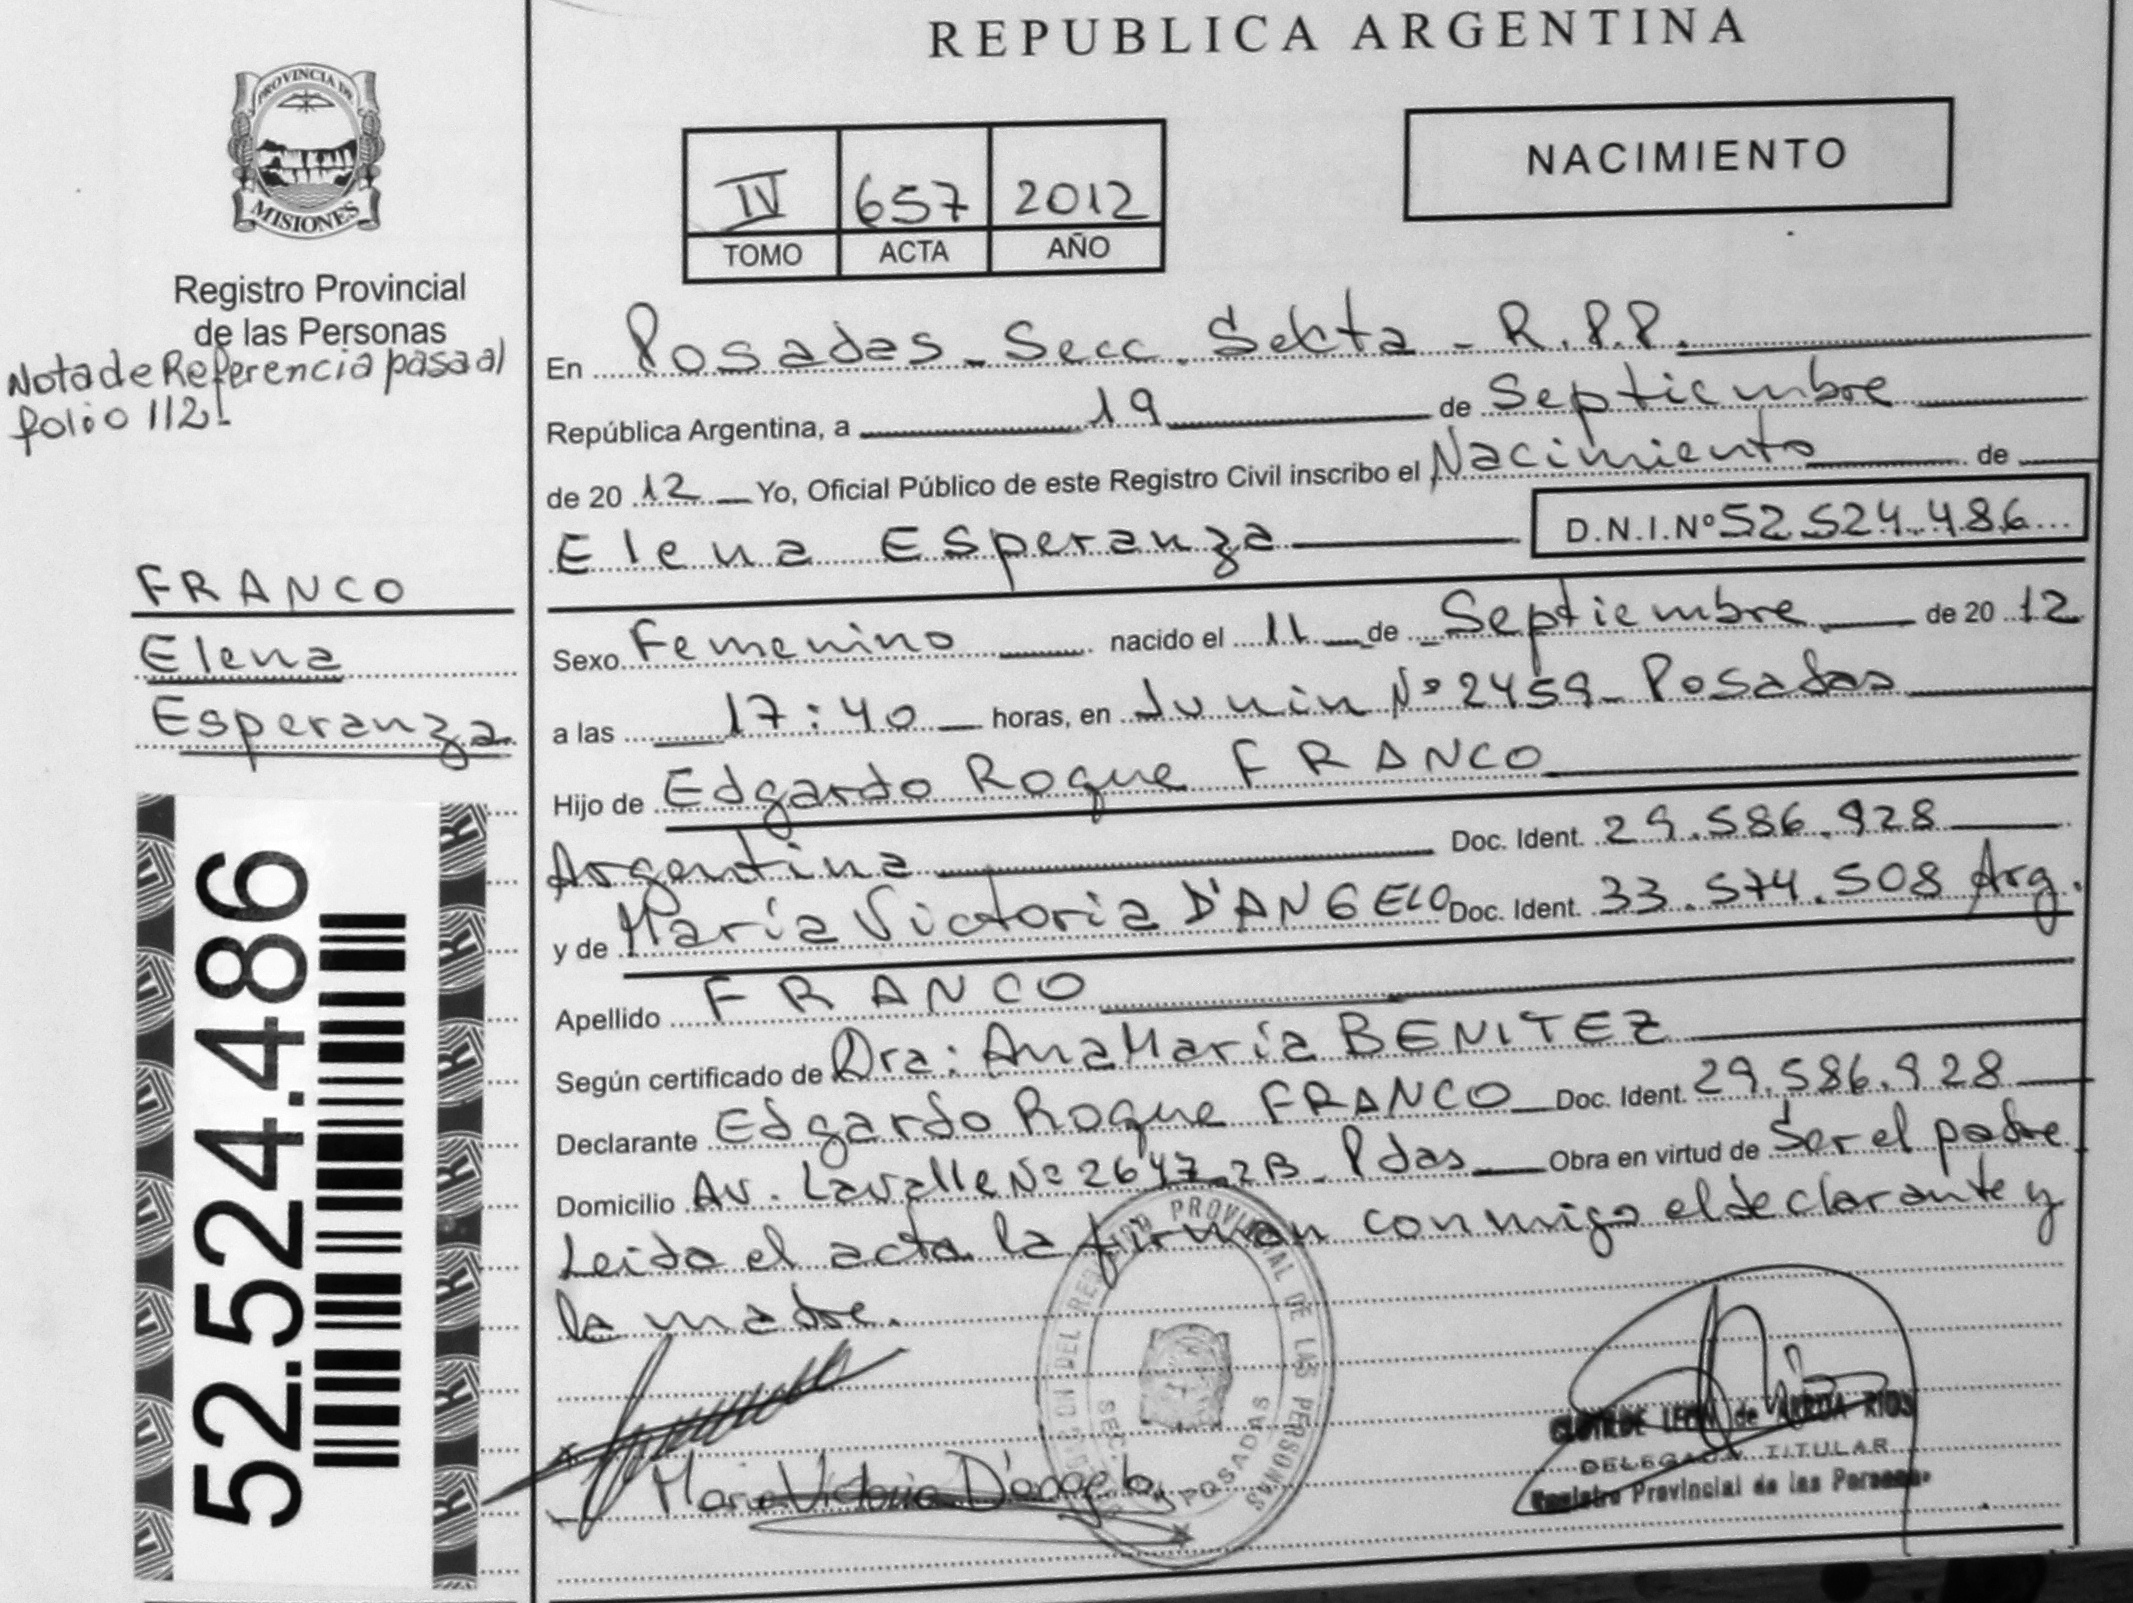 REPUBLICA ARGENTINA
PROVINCIA DE
MISIONES
Registro Provincial
de las Personas
Nota de Referencia pasa al
folio 112!
IV 657 2012
TOMO ACTA AÑO
NACIMIENTO
En Posadas - Secc. Sekta - R.P.P.
República Argentina, a 19 de Septiembre
de 20 12 Yo, Oficial Público de este Registro Civil inscribo el Nacimiento de
Elena Esperanza D.N.I.Nº 52.524.486
FRANCO
Elena
Esperanza
Sexo Femenino nacido el 11 de Septiembre de 20 12
a las 17:40 horas, en Junin Nº 2459 - Posadas
Hijo de Edgardo Roque FRANCO
Argentina Doc. Ident. 29.586.928
y de María Victoria D'ANGELO Doc. Ident. 33.574.508 Arg.
Apellido FRANCO
Según certificado de Dra: Ana María BENITEZ
Declarante Edgardo Roque FRANCO Doc. Ident. 29.586.928
Domicilio Av. Lavalle Nº 2647 - 2B - Pdas Obra en virtud de Ser el padre
Leida el acta la firman conmigo el declarante y
la madre.
52.524.486
Maria Victoria D'angelo
REGISTRO PROVINCIAL DE LAS PERSONAS
SECC.
POSADAS
DELEGADA TITULAR
Registro Provincial de las Personas